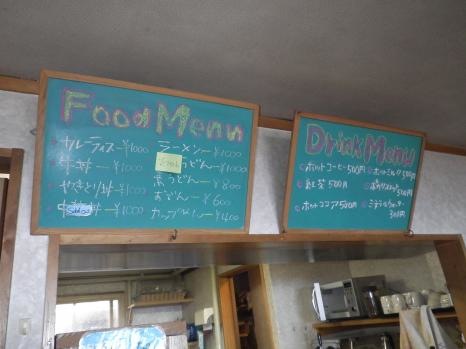 Food Menu
カレーライス ¥1000
牛丼 ¥1000
やきとり丼 ¥1000
ラーメン ¥1000
うどん ¥1000
¥800
おでん ¥600
カップめん ¥400
Drink Menu
ホットコーヒー500円
ホットミルク500円
紅茶500円
ホットココア500円
ミネラルウォーター
300円